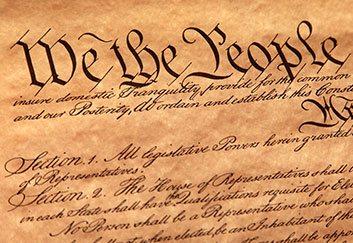 We the People
insure domestic Tranquility, provide for the common
and our Posterity, do ordain and establish this Const
Section. 1. All legislative Powers herein granted
of Representatives.
Section. 2. The House of Representatives shall
in each State shall have the Qualifications requisite for Elect
No Person shall be a Representative who shal
when elected, be an Inhabitant of